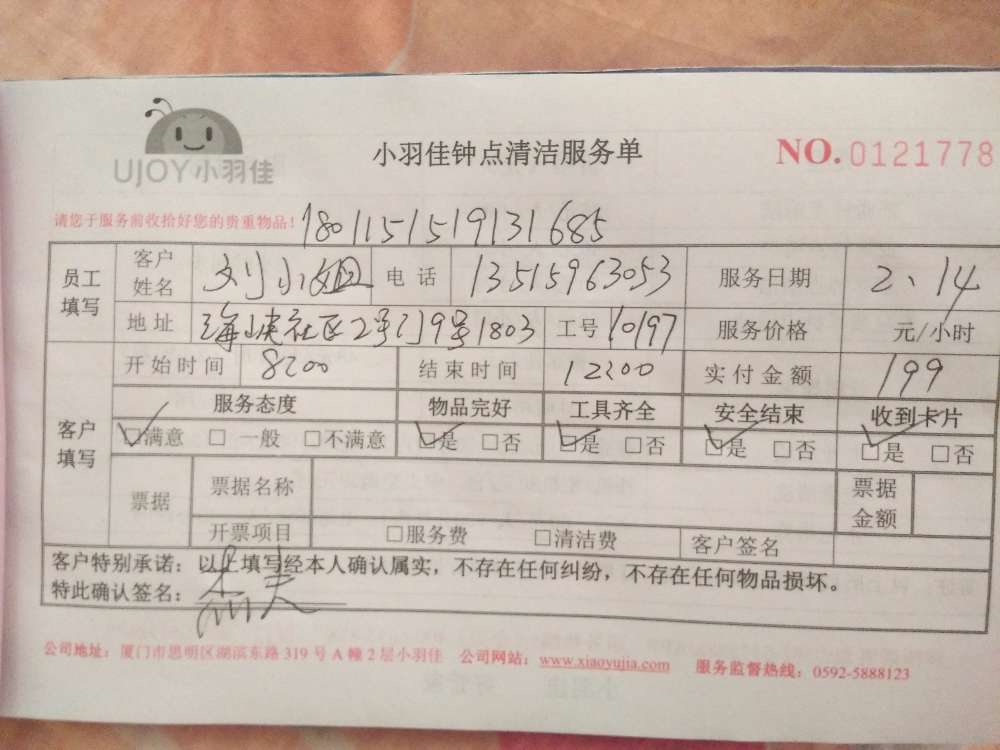 UJOY小羽佳
小羽佳钟点清洁服务单
NO.0121778
请您于服务前收拾好您的贵重物品!
1801151519131685
员工填写 客户姓名 刘小姐 电话 13515963053 服务日期 2、14
地址 海峡社区2号门9号1803 工号 10197 服务价格 元/小时
客户填写 开始时间 8:00 结束时间 12:00 实付金额 199
服务态度 物品完好 工具齐全 安全结束 收到卡片
☑满意 □一般 □不满意 ☑是 □否 ☑是 □否 ☑是 □否 ☑是 □否
票据 票据名称 票据金额
开票项目 □服务费 □清洁费 客户签名
客户特别承诺:以上填写经本人确认属实,不存在任何纠纷,不存在任何物品损坏。
特此确认签名:
公司地址:厦门市思明区湖滨东路319号A幢2层小羽佳 公司网站:www.xiaoyujia.com 服务监督热线:0592-5888123